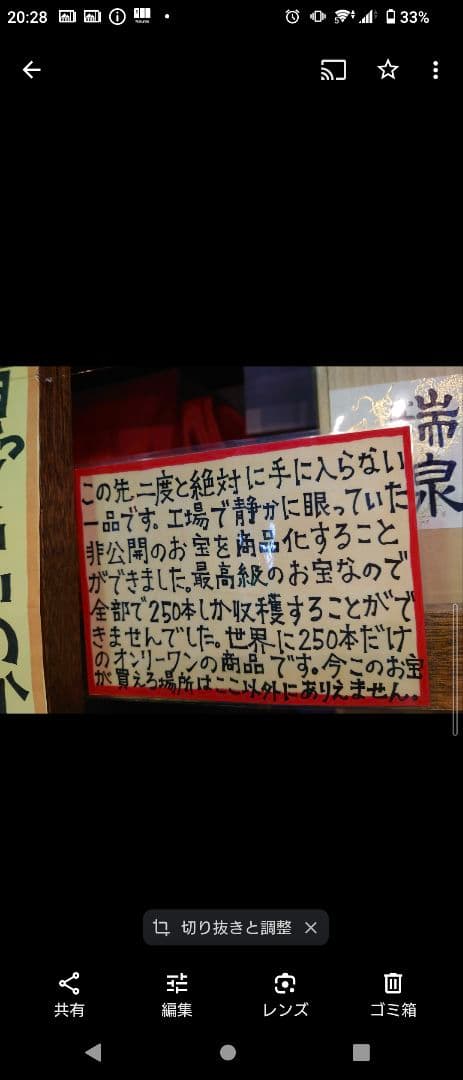 20:28
33%
この先二度と絶対に手に入らない
一品です。工場で静かに眠っていた
非公開のお宝を商品化すること
ができました。最高級のお宝なので
全部で250本しか収穫することがで
きませんでした。世界に250本だけ
のオンリーワンの商品です。今このお宝
が買えろ場所はここ以外にありえません。
瑞泉
切り抜きと調整
共有
編集
レンズ
ゴミ箱